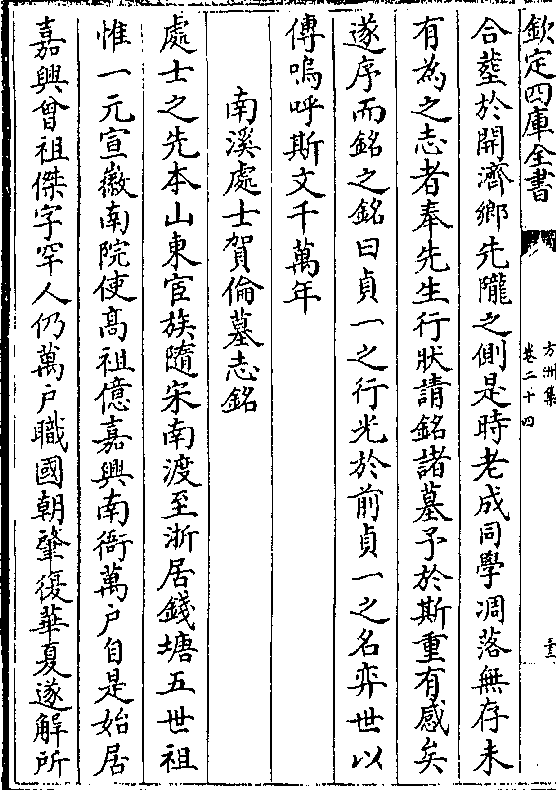 欽定四庫全書
方洲集
卷二十四
合塟於開濟鄉先隴之側是時老成同學凋落無存未
有為之志者奉先生行狀請銘諸墓予於斯重有感矣
遂序而銘之銘曰貞一之行光於前貞一之名弈世以
傳嗚呼斯文千萬年
南溪處士賀倫墓志銘
處士之先本山東宦族隨宋南渡至浙居錢塘五世祖
惟一元宣徽南院使髙祖億嘉興南衙萬户自是始居
嘉興曾祖傑字罕人仍萬户職國朝肇復華夏遂解所